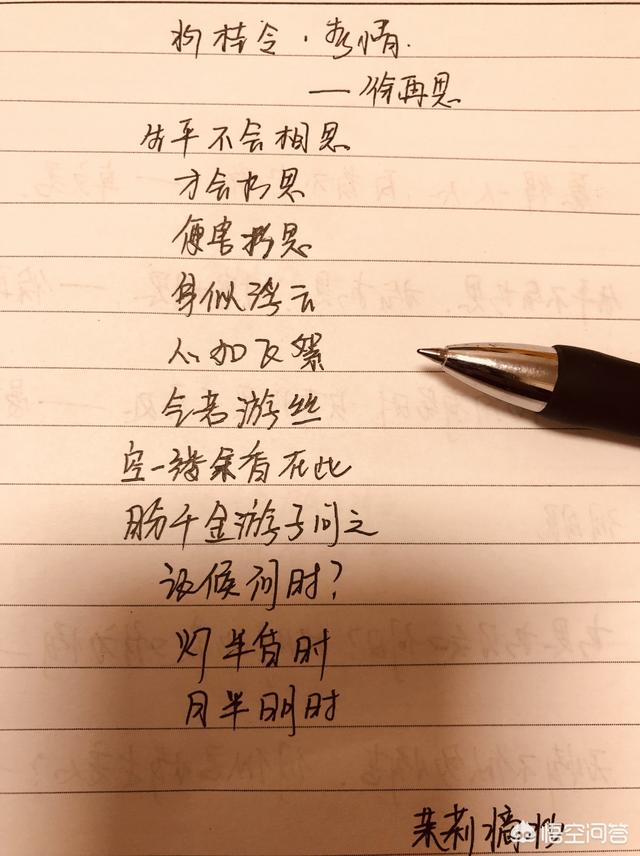 折桂令·春情
——徐再思
生平不会相思
才会相思
便害相思
身似浮云
心如飞絮
气若游丝
空一缕余香在此
盼千金游子问之
证候何时?
灯半昏时
月半明时
茉莉摘
悟空问答